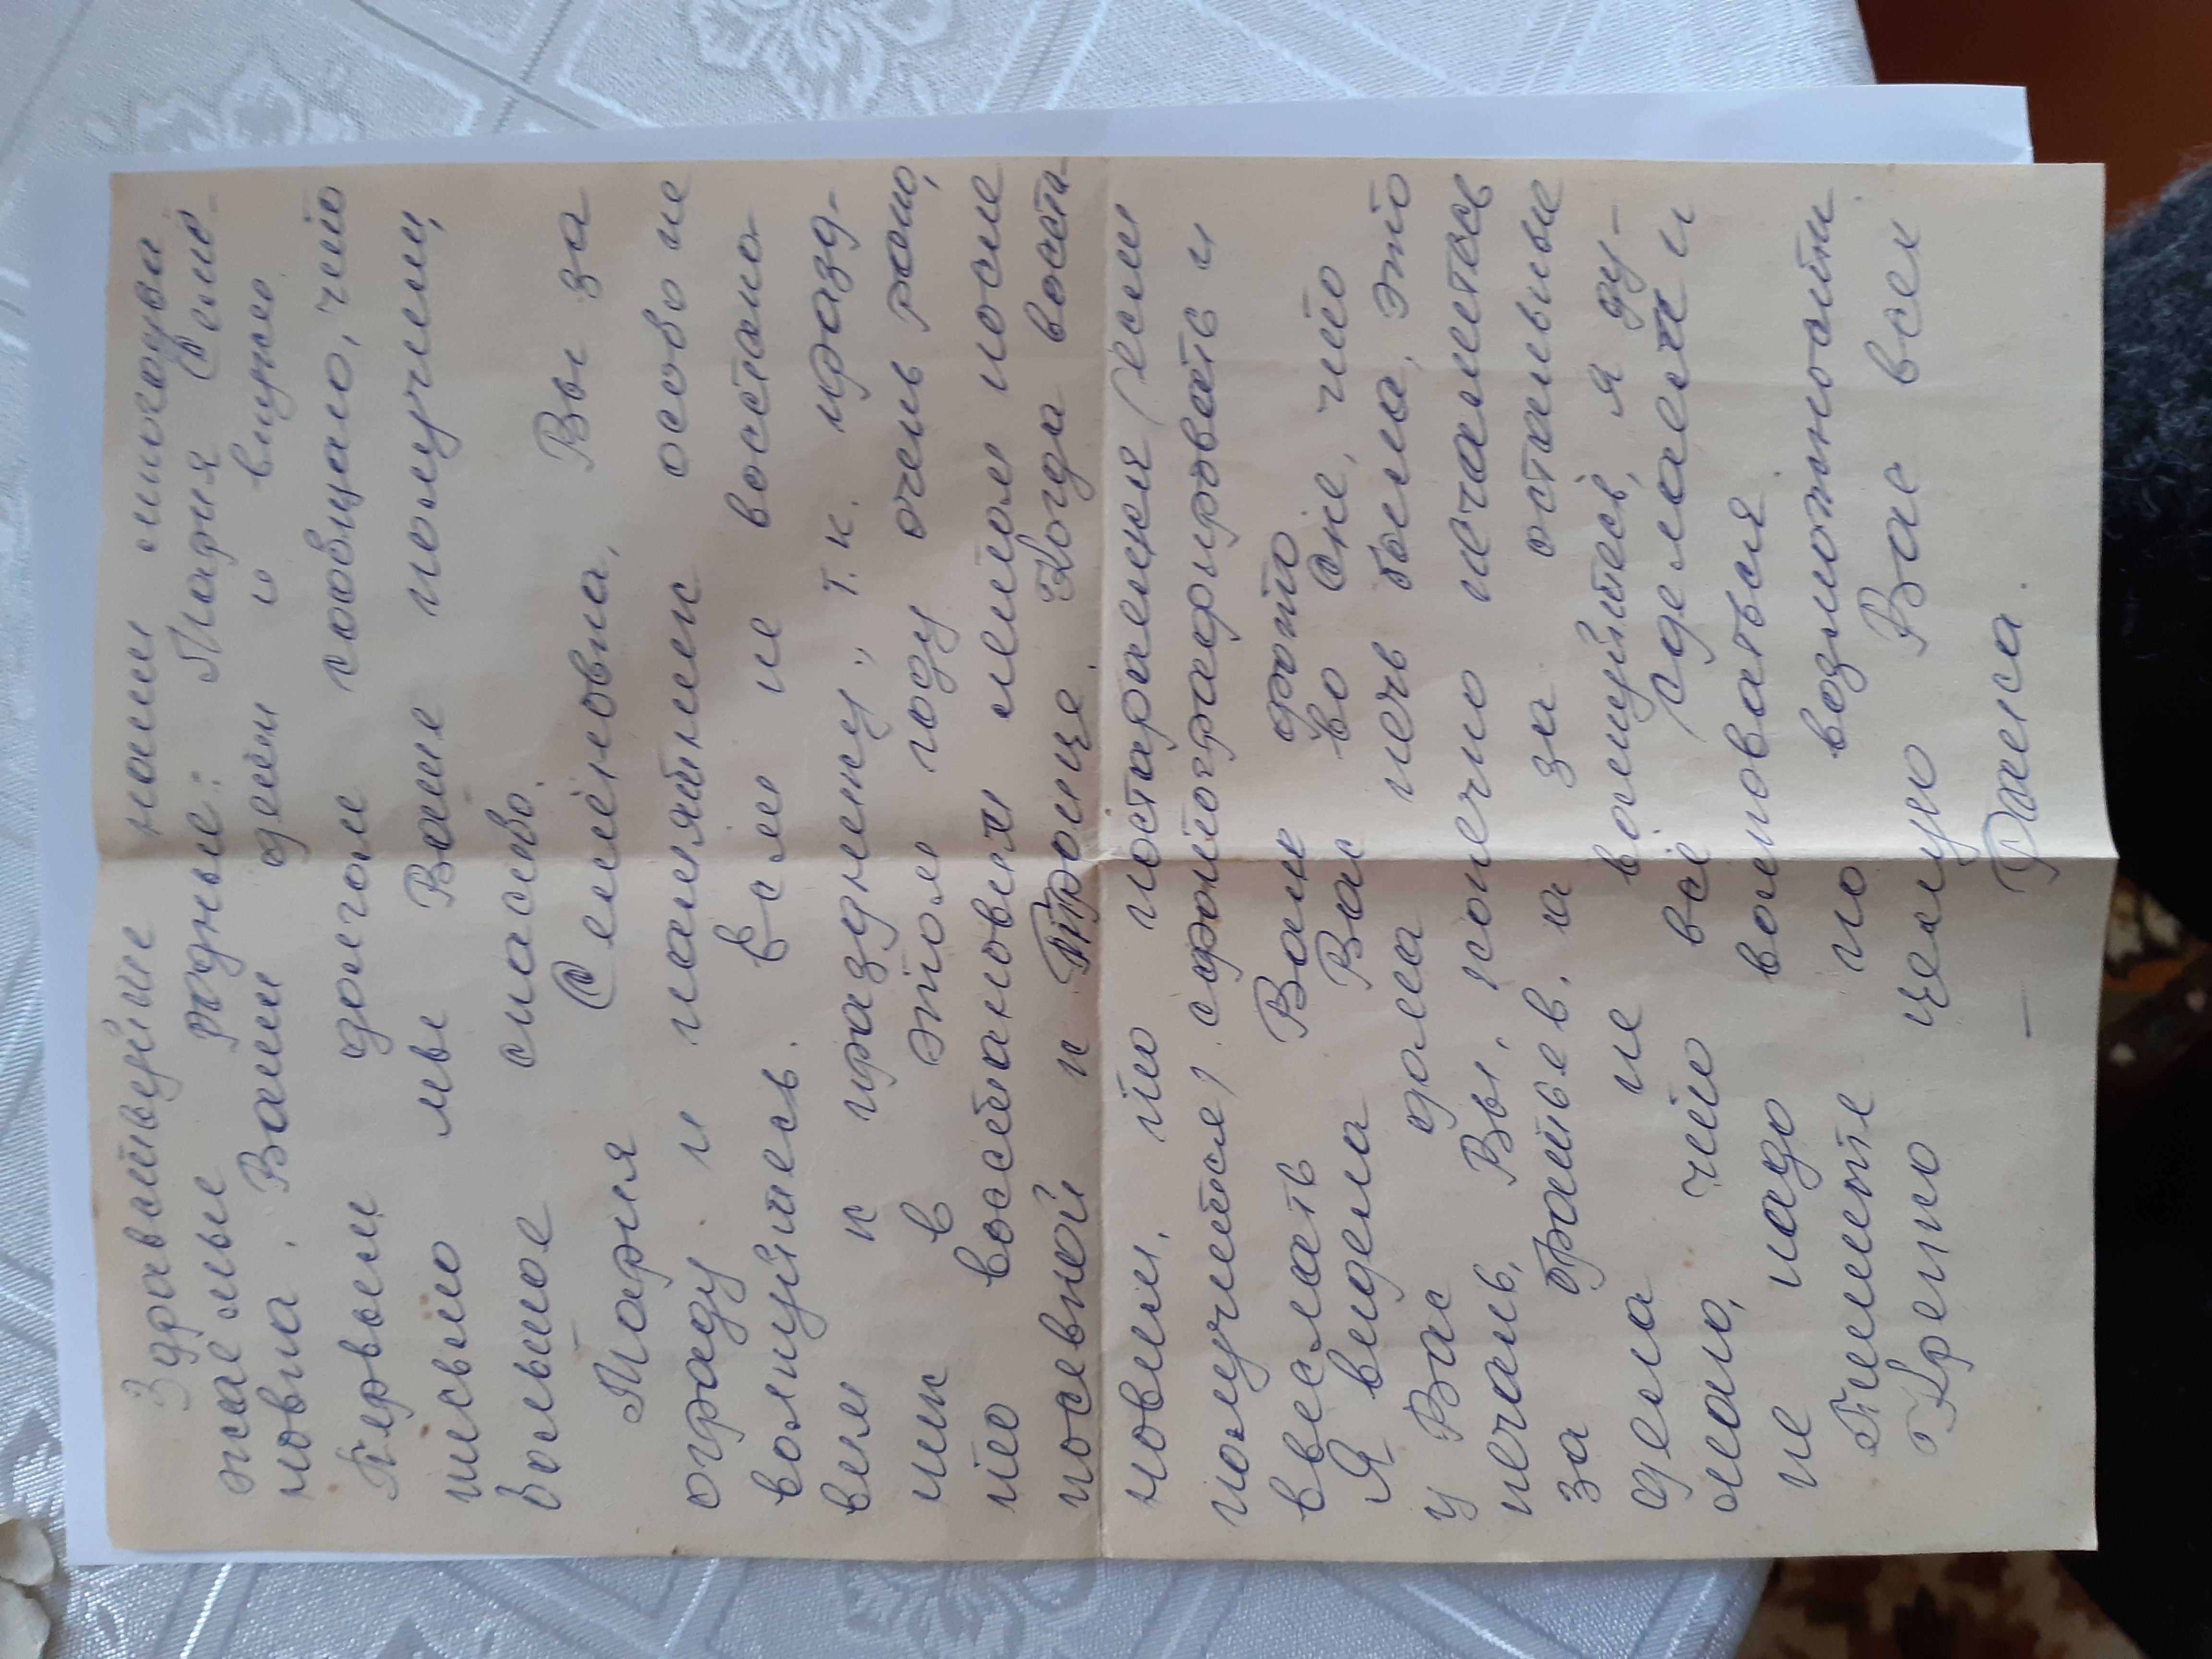 Здравствуйте наши многоува
жаемые родные: Мария Семё-
новна. Ваши дети и внуки.
Первым долгом сообщаю, что
письмо мы Ваше получили,
большое спасибо.
Мария Семёновна, Вы за
ограду и памятник особо не
волнуйтесь. Если не востано
вим к празднику", т.к. празд-
ник в этом году очень рано,
то востановим летом после
посевной к Троице. Когда воста-
новим, то постараемся (если
получится) сфотографировать и
выслать Вам фото
Я видела Вас во сне, что
у Вас дома печь была, это
печаль, Вы, конечно печалитесь
за братьев, а за остальные
дела не волнуйтесь, я ду-
маю, что всё сделаем и
не надо волноваться.
Пишите по возможности.
Крепко целую Вас всех